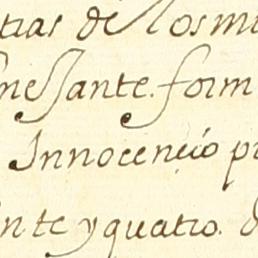 tias de los mi
nessante. form
Innocencio pr
inte y quatro. d